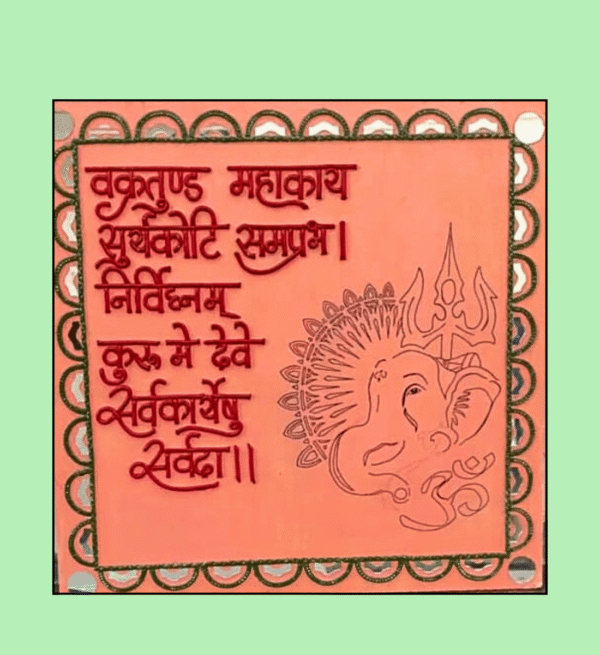 वक्रतुण्ड महाकाय
सुर्यकोटि समप्रभ।
निर्विघ्नम्
कुरू मे देवे
सर्वकार्येषु
सर्वदा।।
ॐ